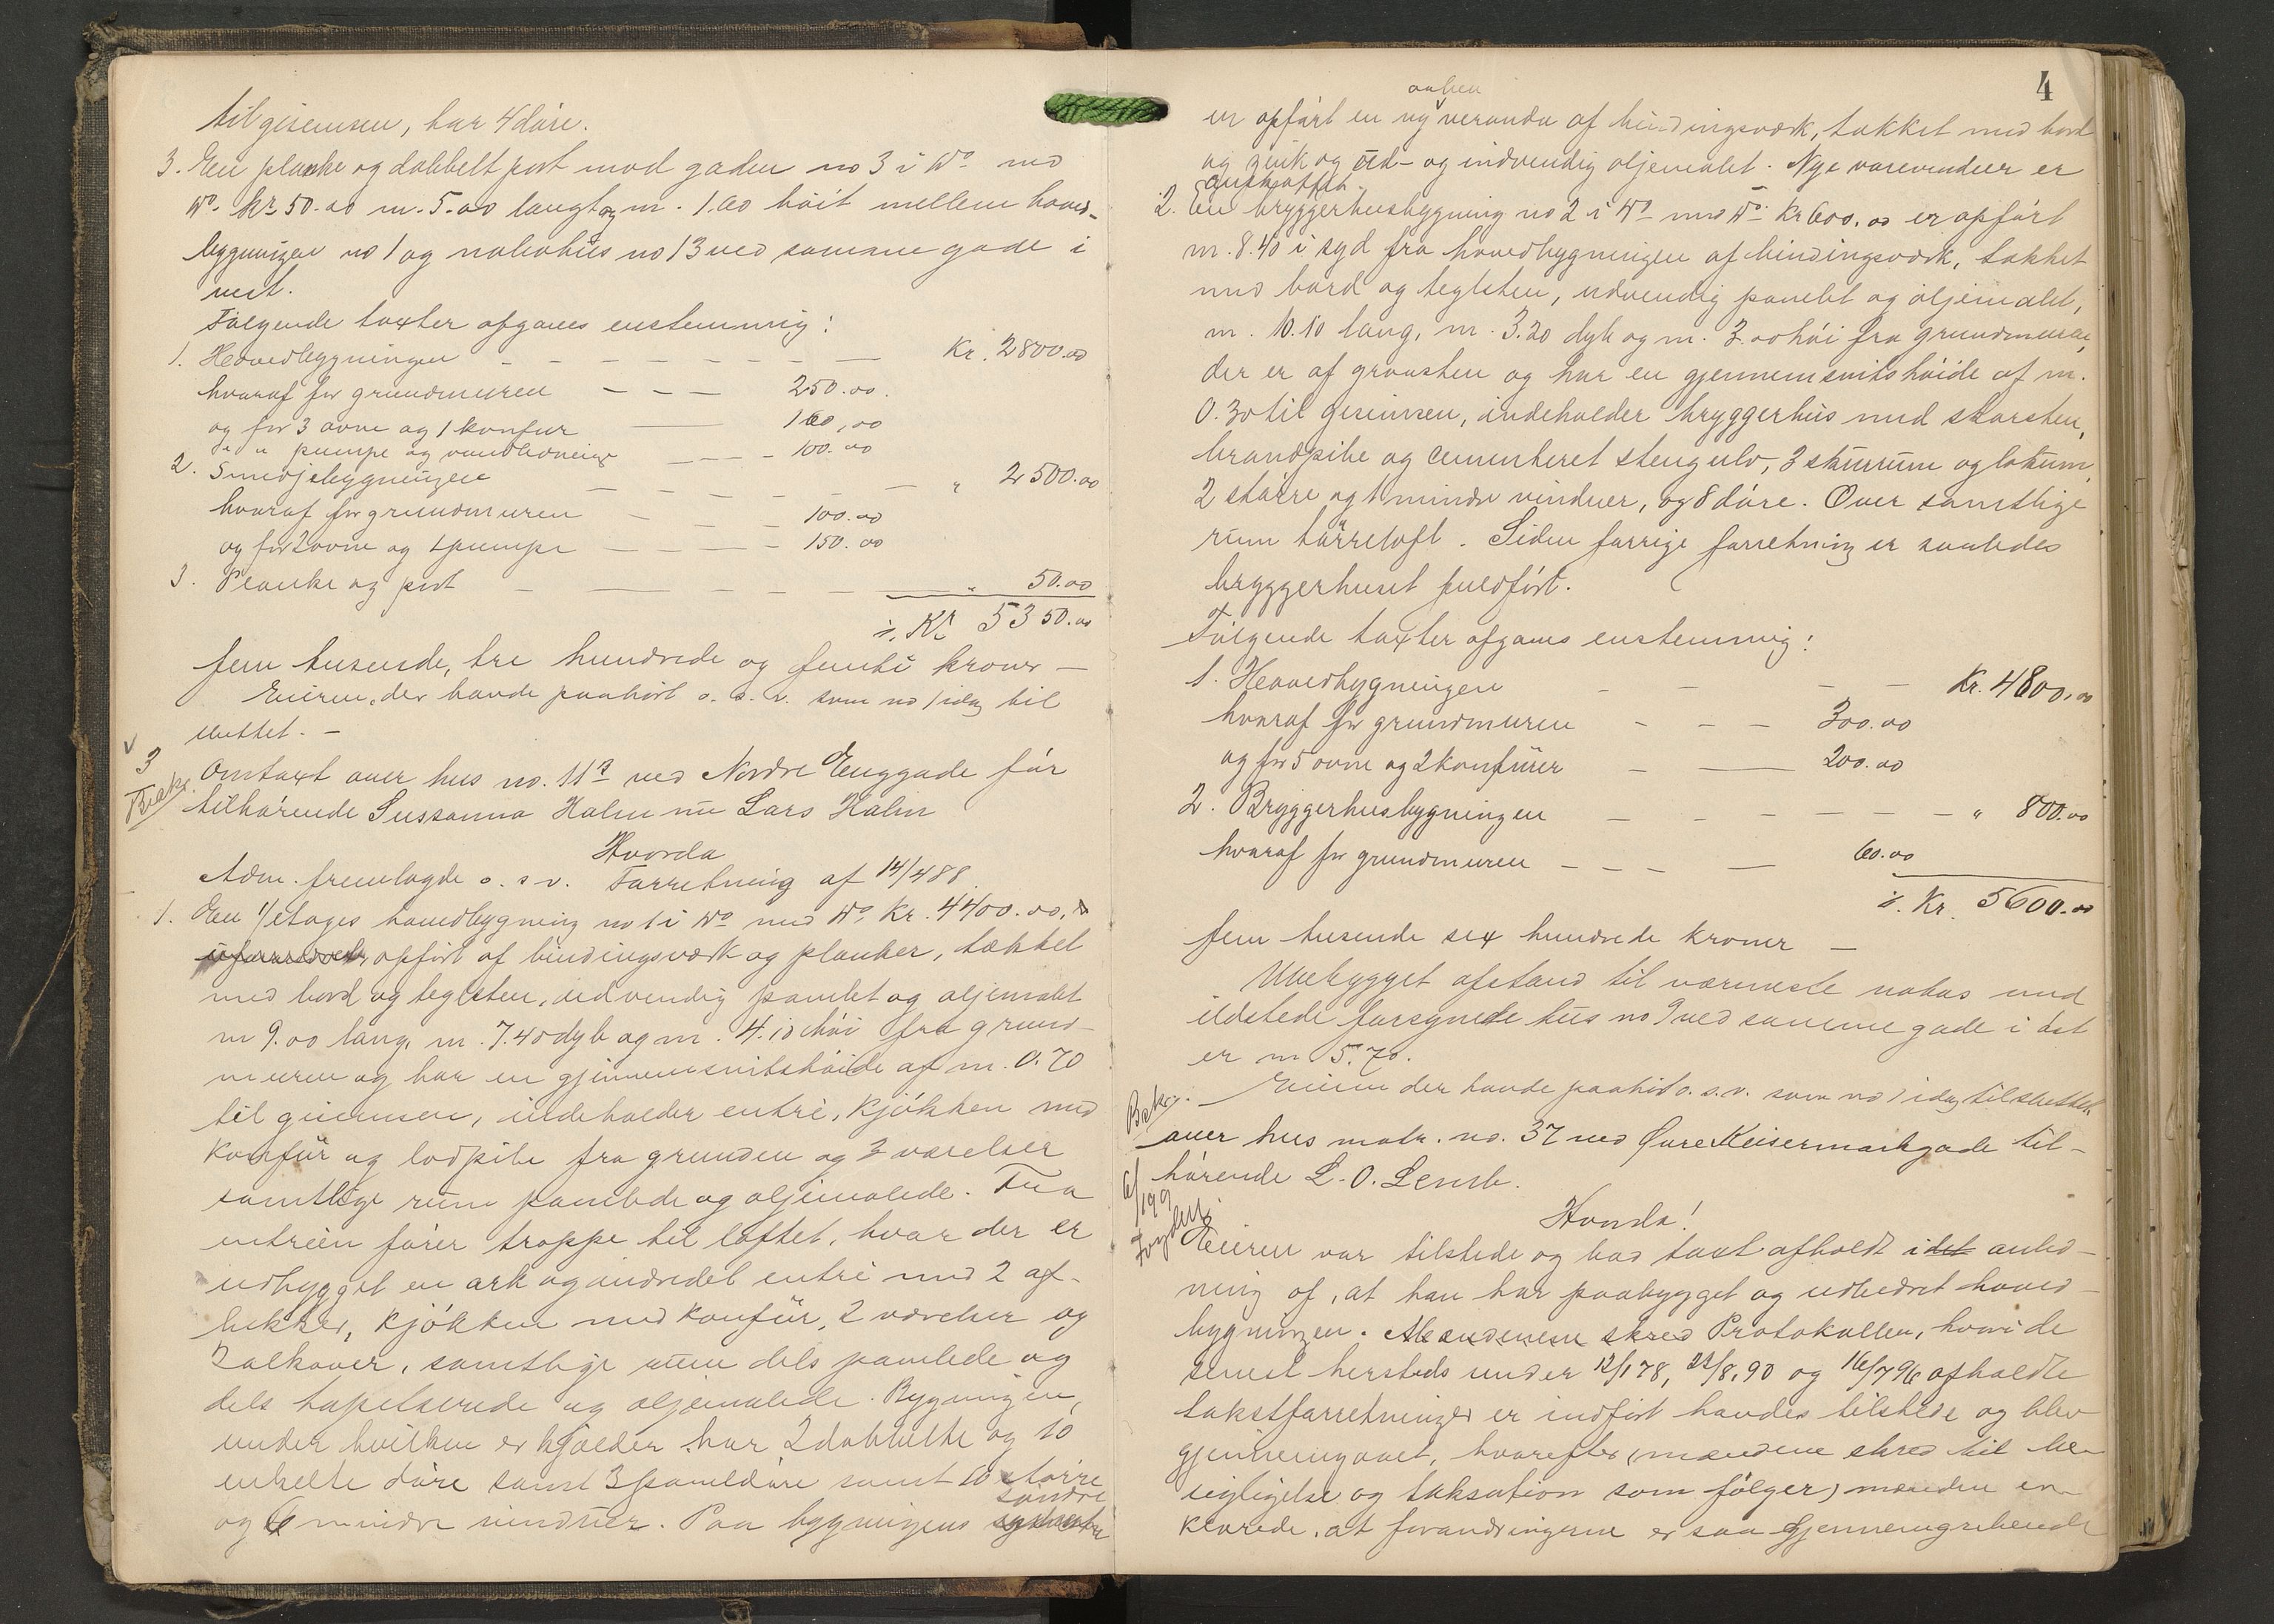 til gesemsen, har 4 döre.
3. En planke og dobbelt port mod gaden no 3 i Wo med
Wo. kr. 50.00 m. 5.00 langt og m. 1.00 höit mellem hoved-
bygningen no 1 og nabohus no 13 ved samme gade i
vest.
Fölgende taxter afgaves enstemmig:
1. Hovedbygningen — Kr. 2800.00
hvoraf for grundmuren — 250.00.
og for 3 ovne og 1 komfur — 100,00
" " pumpe og vandledning — 100.00
2. Smedjebygningen — " 2500.00
hvoraf for grundmuren — 100.00
og for 2 ovne og 1 pumpe — 150.00
3. Planke og port — " 50.00
er. Kr 5350.00
fem tusende, tre hundrede og femti kroner —
Eieren, der havde paahört o. s. v. som no 1 idag til
sluttet. —
3 Omtaxt over hus no. 11a ved Nordre Enggade för
Bekr. tilhörende Sussanna Halm nu Lars Halm
Hvorda
Adm. fremlagde o. s. v. Forretning af 14/488
1. En 1/etages hovedbygning no 1 i Wo med Wo. Kr. 4400.00, er
opfört af bindingsværk og planker, tækket
med bord og teglsten, udvendig panelet og oljemalet
m 9.00 lang, m. 7.40 dyb og m. 4.10 höi fra grund-
muren og har en gjennemsnitshöide af m. 0.70
til gesemsen, indeholder entré, kjökken med
komfür og lodpibe fra grunden og 3 værelser
samtlige rüm panelede og oljemalede. Fra
entréen förer trappe til loftet, hvor der er
udbygget en ark og indredet entré med 2 af-
lukker, kjökken med komfür, 2 værelser og
2 alkover, samtlige rüm dels panelede og
dels tapetserede og oljemalede. Bygningen,
under hvilken er kjælder, har 2 dobbelte og 10
enkelte döre samt 3 paneldöre samt 10 större
og 6 mindre vinduer. Paa bygningens söndre
4
aaben
er opfört en ny veranda af bindingsværk, tækket med bord
og zink og üd- og indvendig oljemalet. Nye varevinduer er
anskaffet.
2. En bryggerhusbygning no 2 i Wo med Wo. Kr 600.00 er opfört
m. 8.40 i syd fra hovedbygningen af bindingsværk, tækket
med bord og teglsten, udvendig panelet og oljemalet,
m. 10.10 lang, m. 3.20 dyb og m. 3.00 höi fra grundmuren,
der er af graasten og har en gjennemsnitshöide af m.
0.30 til gesimsen, indeholder bryggerhüs med skorsten,
brandpibe og cementeret stengulv, 3 skürrüm og lokum,
2 större og 1 mindre vinduer, og 8 döre. Over samtlige
rüm törreloft. Siden forrige forretning er saaledes
bryggerhuset fuldfört.
Fölgende taxter afgaves enstemmig:
1. Hovedbygningen — Kr. 4800.00
hvoraf for grundmuren — 300.00
og for 5 ovne og 2 komfürer — 200.00
2. Bryggerhusbygningen — " 800.00
hvoraf for grundmuren — 60.00
er. Kr. 5600.00
fem tusende sex hundrede kroner —
Ubebygget afstand til nærmeste nabos med
ildstede forsynede hüs no 9 ved samme gade i öst
er m 5.70.
Eieren der havde paahört o. s. v. som no 1 idag tilsluttet.
Bekr.
over hus matr. no. 37 ved Övre Keisermarkgade til-
hörende L. O. Lensb.
Hvorda!
Eieren var tilstede og bad taxt afholdt i det anled-
ning af, at han har paabygget og udbedret hoved-
bygningen. Protokollen, hvori de
senest hersteds under 12/178, 22/8.90 og 16/796 afholdte
takstforretninger er indfört havdes tilstede og blev
gjennemgaaet, hvorefter (mændene skred til be-
sigtigelse og taksation som fölger) mænden er-
klærede, at forandringerne er saa gjennemgribende